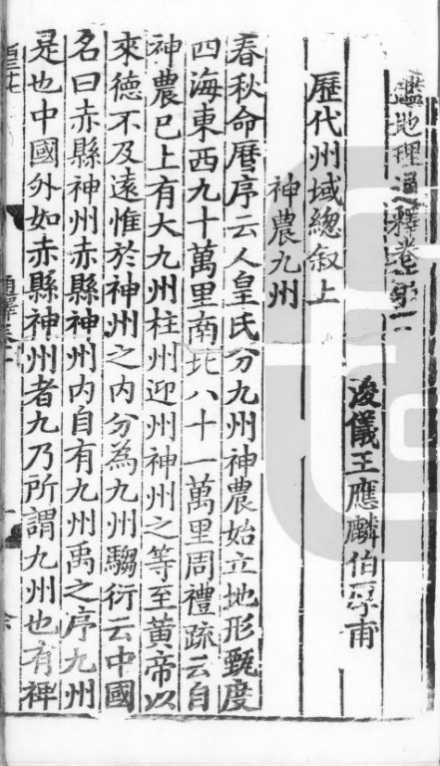 鑑地理通釋卷第一
浚儀王應麟伯厚甫
歷代州域總叙上
神農九州
春秋命曆序云人皇氏分九州神農始立地形甄度
四海東西九十萬里南北八十一萬里周禮疏云自
神農已上有大九州柱州迎州神州之等至黃帝以
來德不及遠惟於神州之内分為九州騶衍云中國
名曰赤縣神州赤縣神州内自有九州禹之序九州
是也中國外如赤縣神州者九乃所謂九州也有裨
通釋卷一